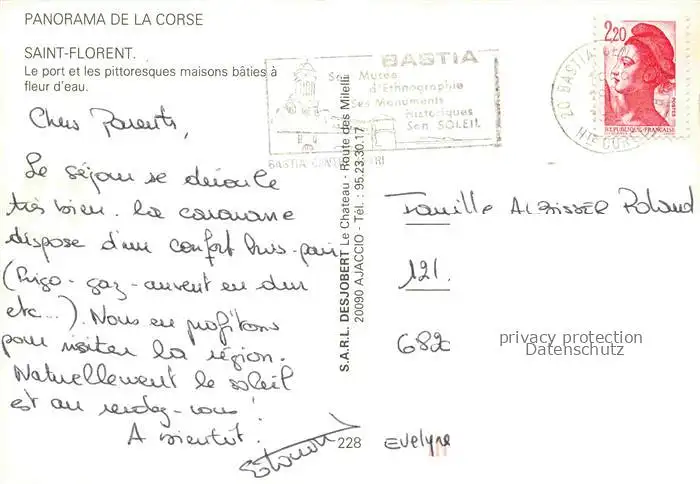 PANORAMA DE LA CORSE
SAINT-FLORENT.
Le port et les pittoresques maisons bâties à
fleur d'eau.
Chers Parents,
Le séjour se déroule
très bien. La caravane
dispose d'un confort
(frigo - gaz - auvent en dur
etc...). Nous en profitons
pour visiter la région.
Naturellement le soleil
est au rendez-vous !
A bientôt.
228
S.A.R.L. DESJOBERT Le Chateau - Route des Milelli
20090 AJACCIO - Tél. : 95.23.30.17
BASTIA
Son Musée
d'Ethnographie
Ses Monuments
historiques
Son SOLEIL
BASTIA
2,20
POSTES
REPUBLIQUE FRANÇAISE
20 BASTIA
HTE CORSE
Famille Roland
121.
682
privacy protection
Datenschutz
Evelyne